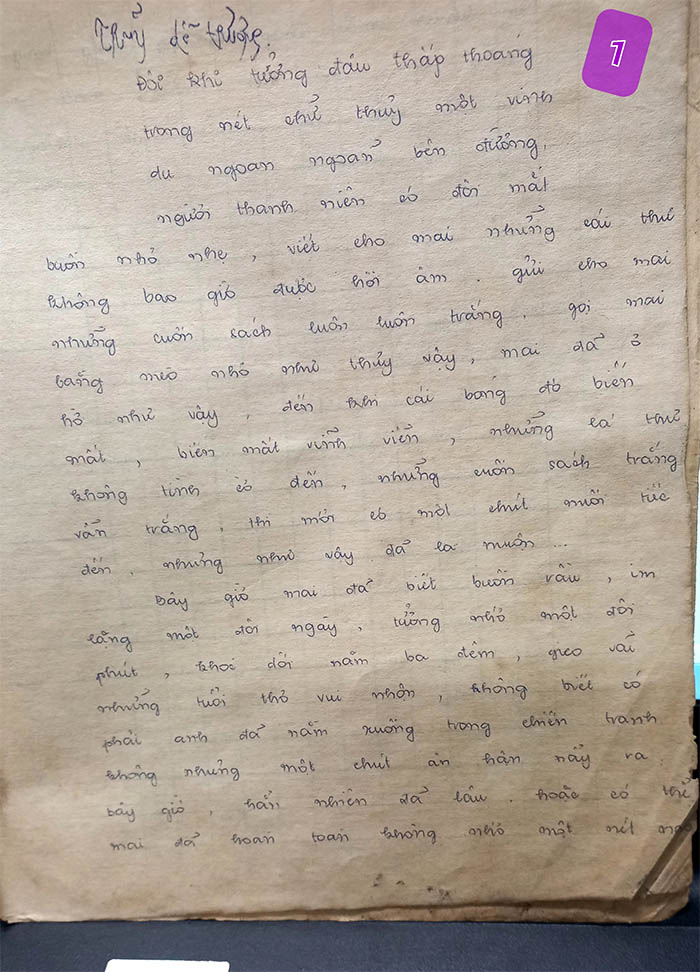 Thủy dễ thương.
1
Đôi khi tưởng đâu thấp thoáng
trong nét chữ thủy một vinh
du ngoạn ngoan bên đường,
người thanh niên có đôi mắt
buồn nhỏ nhẹ, viết cho mai những cái thư
không bao giờ được hồi âm. gửi cho mai
những cuốn sách luôn luôn trắng. gọi mai
bằng mèo nhỏ như thủy vậy, mai đã ở
hờ như vậy, đến khi cái bóng đó biến
mất, biến mất vĩnh viễn, những lá thư
không tình cờ đến, những cuốn sách trắng
vẫn trắng, thì mới có một chút nuối tiếc
đến. nhưng như vậy đã là muộn...
Bây giờ mai đã biết buồn rầu, im
lặng một đôi ngày, tưởng nhớ một đôi
phút, khóc dối năm ba đêm, gieo vãi
những tuổi thơ vui nhộn, không biết có
phải anh đã nằm xuống trong chiến tranh
không nhưng một chút ân hận nẩy ra.
bây giờ, hẳn nhiên đã lâu. hoặc có thể
mai đã hoàn toàn không nhớ một nét